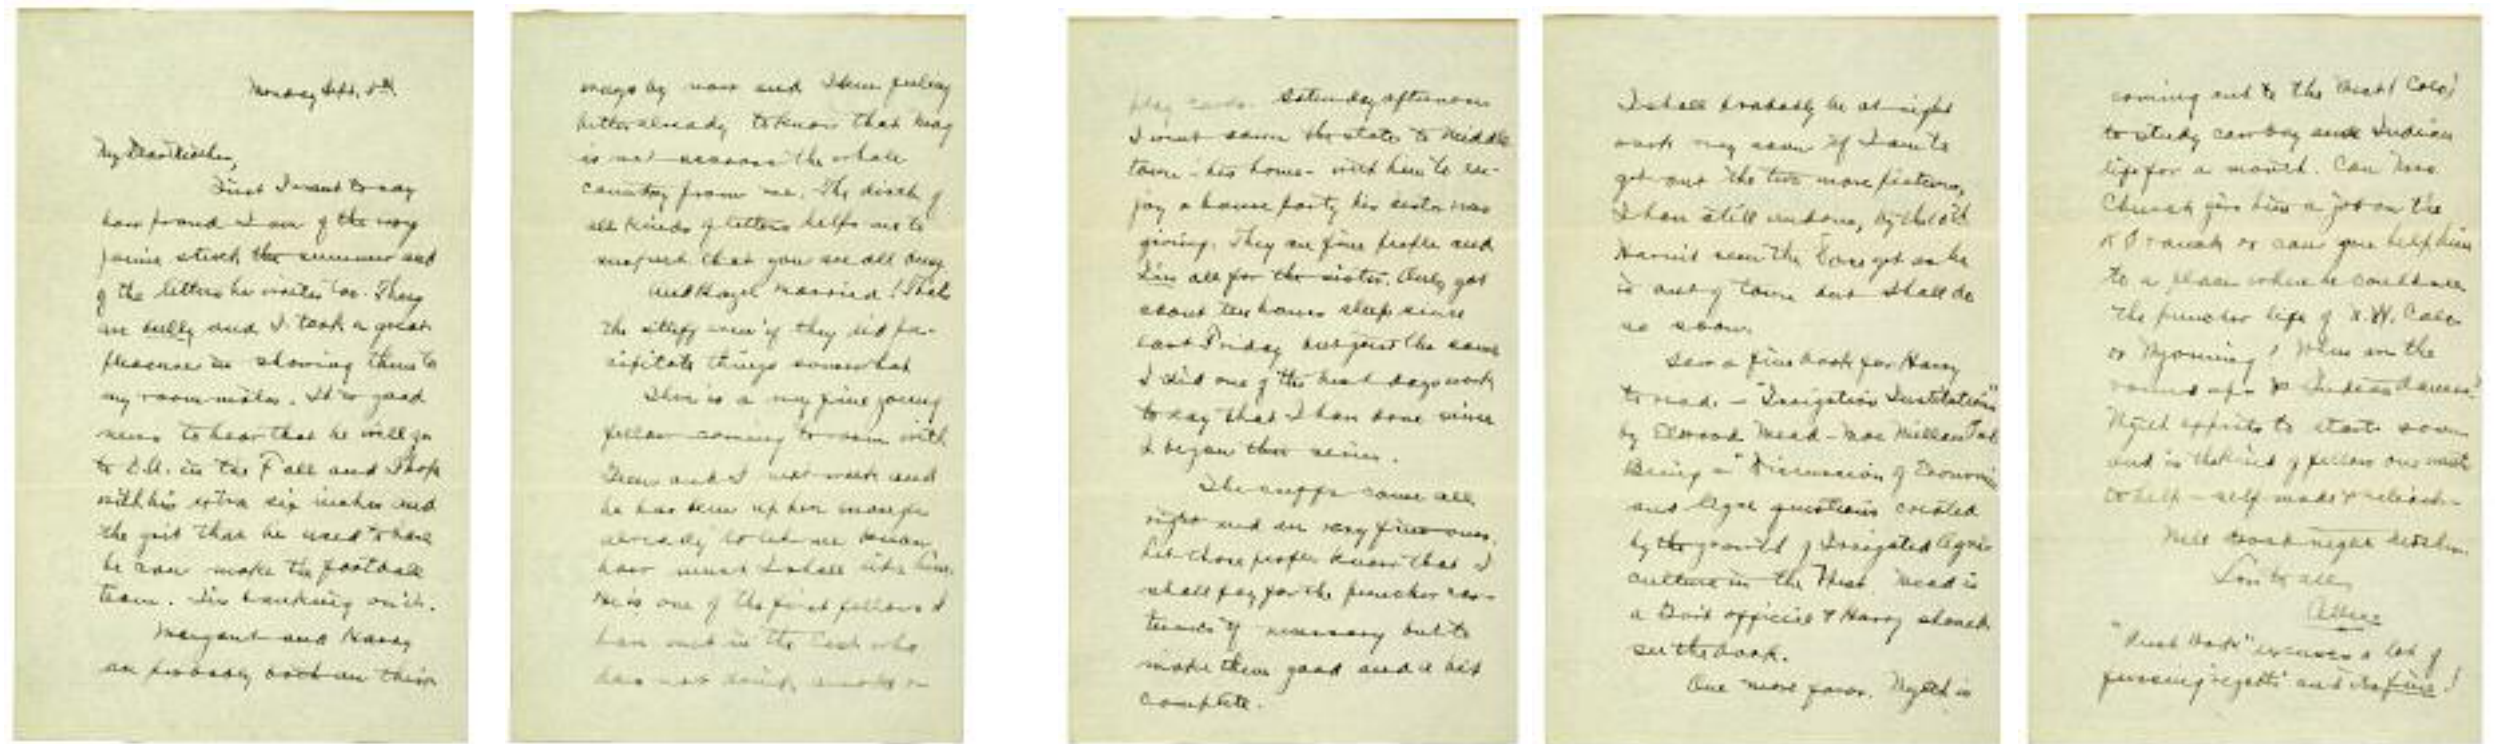 Monday Sept. 8th
My Dear Mother,
First I want to say
how proud I am of the way
Jamie stuck the summer and
of the letters he writes too. They
are bully and I took a great
pleasure in showing them to
my room-mates. It is good
news to hear that he will go
to in the Fall and I hope
with his extra six inches and
the grit that he used to have
he can make the football
team. I'm banking on it.
Margaret and Harry
are probably both on their
ways by now and I am feeling
better already to know that Marg
is not across the whole
country from me. The dearth of
all kinds of letters helps me to
suspect that you are all busy
And Hazel married! That's
the stuff even if they did pre-
cipitate things somewhat
There is a very fine young
fellow coming to room with
and I next week and
he has been up here enough
already to let me know
how much I shall like him.
He is one of the first fellows I
have met in the East who
does not drink, smoke or
play cards. Saturday afternoon
I went down the state to Middle
town - his home - with him to en-
joy a house party his sister was
giving. They are fine people and
I'm all for the sister. Only got
about ten hours sleep since
last Friday but just the same
I did one of the best days work
to-day that I have done since
I began this series.
The cuffs came all
right and are very fine ones.
Let those people know that I
shall pay for the puncher
if necessary but to
make them good and a bit
complete.
I shall probably be at night
work very soon if I am to
get out the two more pictures,
I have still undone, by the
Haven't seen the yet as he
is out of town but shall do
so soon.
Saw a fine book for Harry
to read. - "Irrigation Institutions"
by Elwood Mead - MacMillan Pub
Being a "Discussion of Economic
and Legal questions created
by the growth of Irrigated Agri-
culture in the West. Mead is
a Gov't official & Harry should
see the book.
One more favor. Wyeth is
coming out to the West (Colo)
to study cowboy and Indian
life for a month. Can Mr.
Church give him a job on the
ranch or can you help him
to a place where he could see
the puncher life of N.W. Colo
or Wyoming? When are the
round ups & Indian dances?
Wyeth expects to start soon
and is the kind of fellow one wants
to help - self-made &
Well Good-night Mother.
Love to all,
Allen
"Rush Work" excuses a lot of